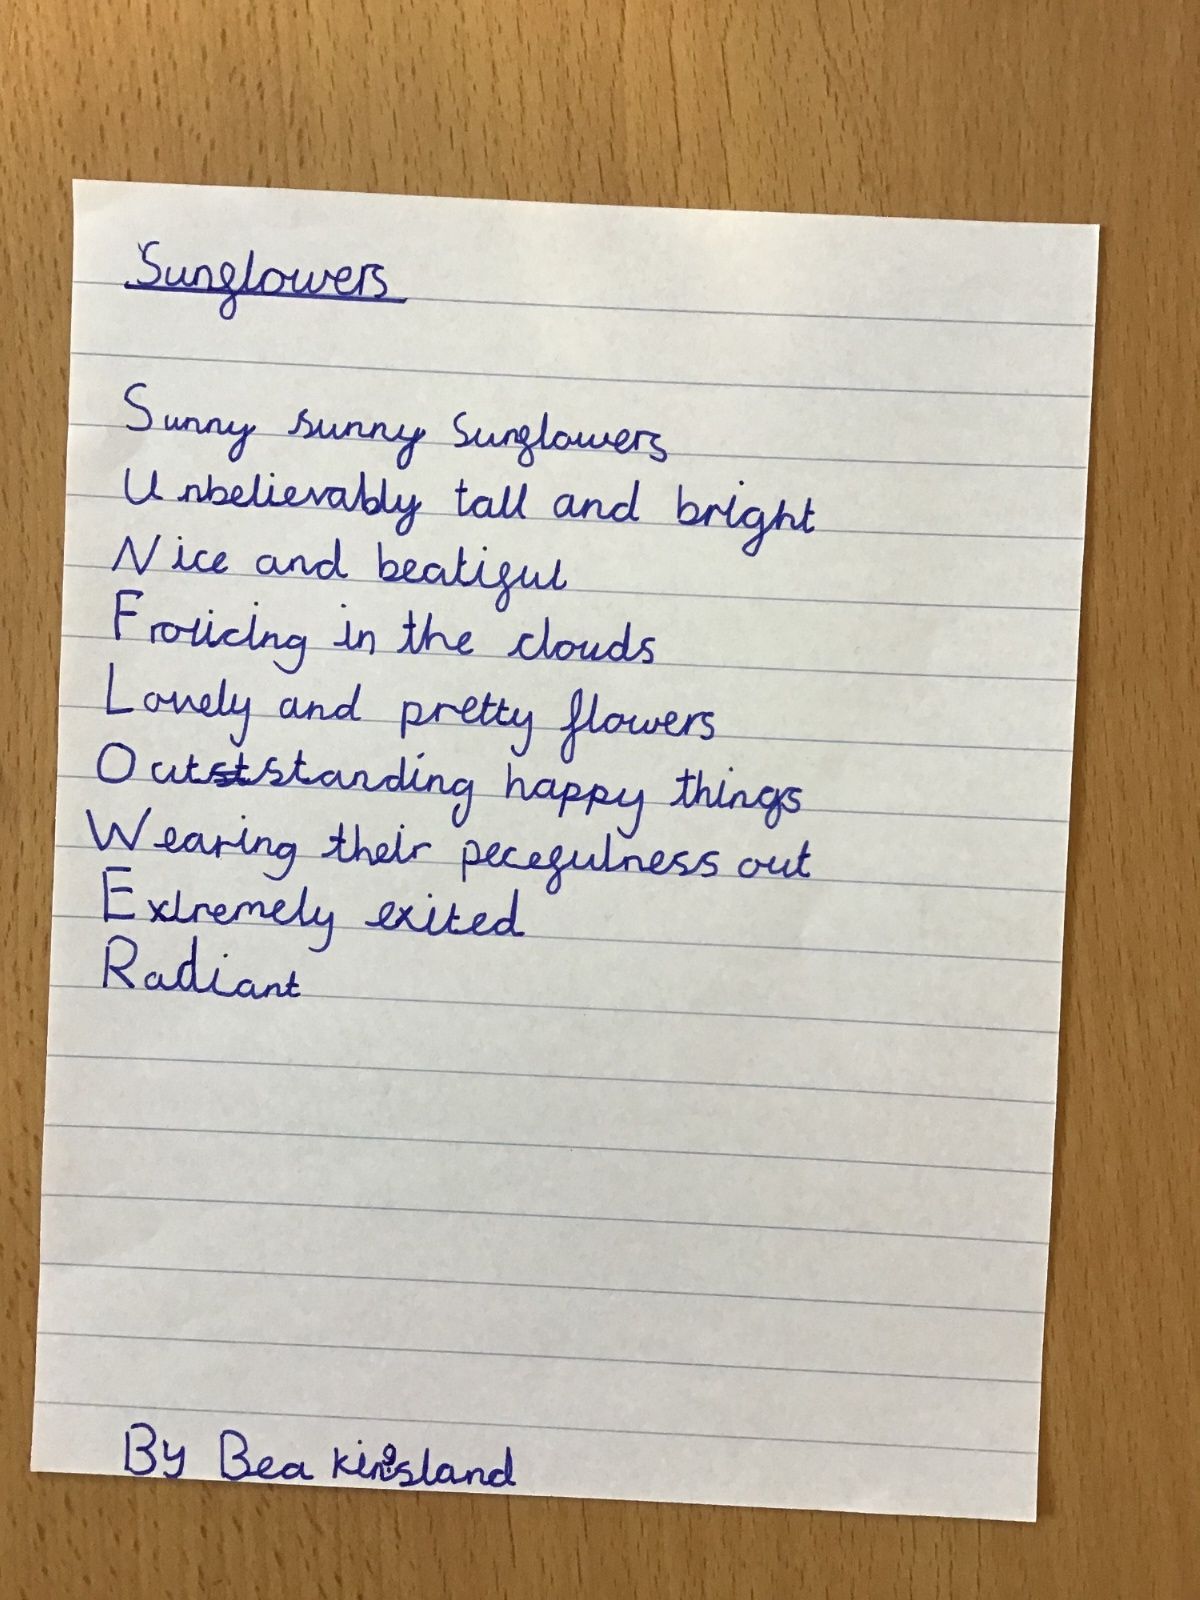 Sunflowers
Sunny sunny Sunflowers
Unbelievably tall and bright
Nice and beatiful
Frolicing in the clouds
Lovely and pretty flowers
Outststanding happy things
Wearing their pecefulness out
Extremely exited
Radiant
By Bea kingsland